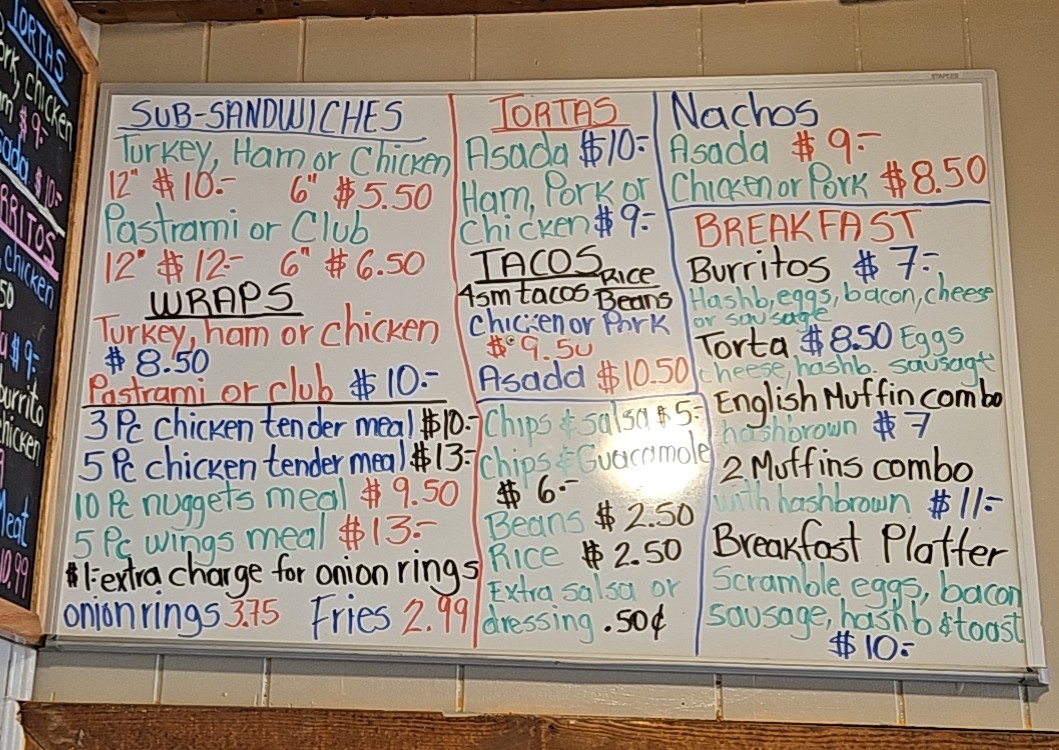 TORTAS
ork, chicken
am $9-
sada $10-
RRITOS
chicken
50
$9-
burrito
chicken
9
Meat
10.99
STAPLES
SUB-SANDWICHES
Turkey, Ham or Chicken
12" $10.- 6" $5.50
Pastrami or Club
12" $12- 6" $6.50
WRAPS
Turkey, ham or chicken
$8.50
Pastrami or club $10.-
3 Pc chicken tender meal $10-
5 Pc chicken tender meal $13-
10 Pc nuggets meal $9.50
5 Pc wings meal $13.-
$1-extra charge for onion rings
onion rings 3.75 Fries 2.99
TORTAS
Asada $10-
Ham, Pork or
Chicken $9-
TACOS
4sm tacos Rice
Beans
Chicken or Pork
$9.50
Asada $10.50
Chips & salsa $5-
Chips & Guacamole
$6.-
Beans $2.50
Rice $2.50
Extra salsa or
dressing .50¢
Nachos
Asada $9.-
Chicken or Pork $8.50
BREAKFAST
Burritos $7-
Hashb, eggs, bacon, cheese
or sausage
Torta $8.50 Eggs
cheese, hashb. sausage
English Muffin combo
hashbrown $7
2 Muffins combo
with hashbrown $11-
Breakfast Platter
Scramble eggs, bacon
sausage, hashb & toast
$10-